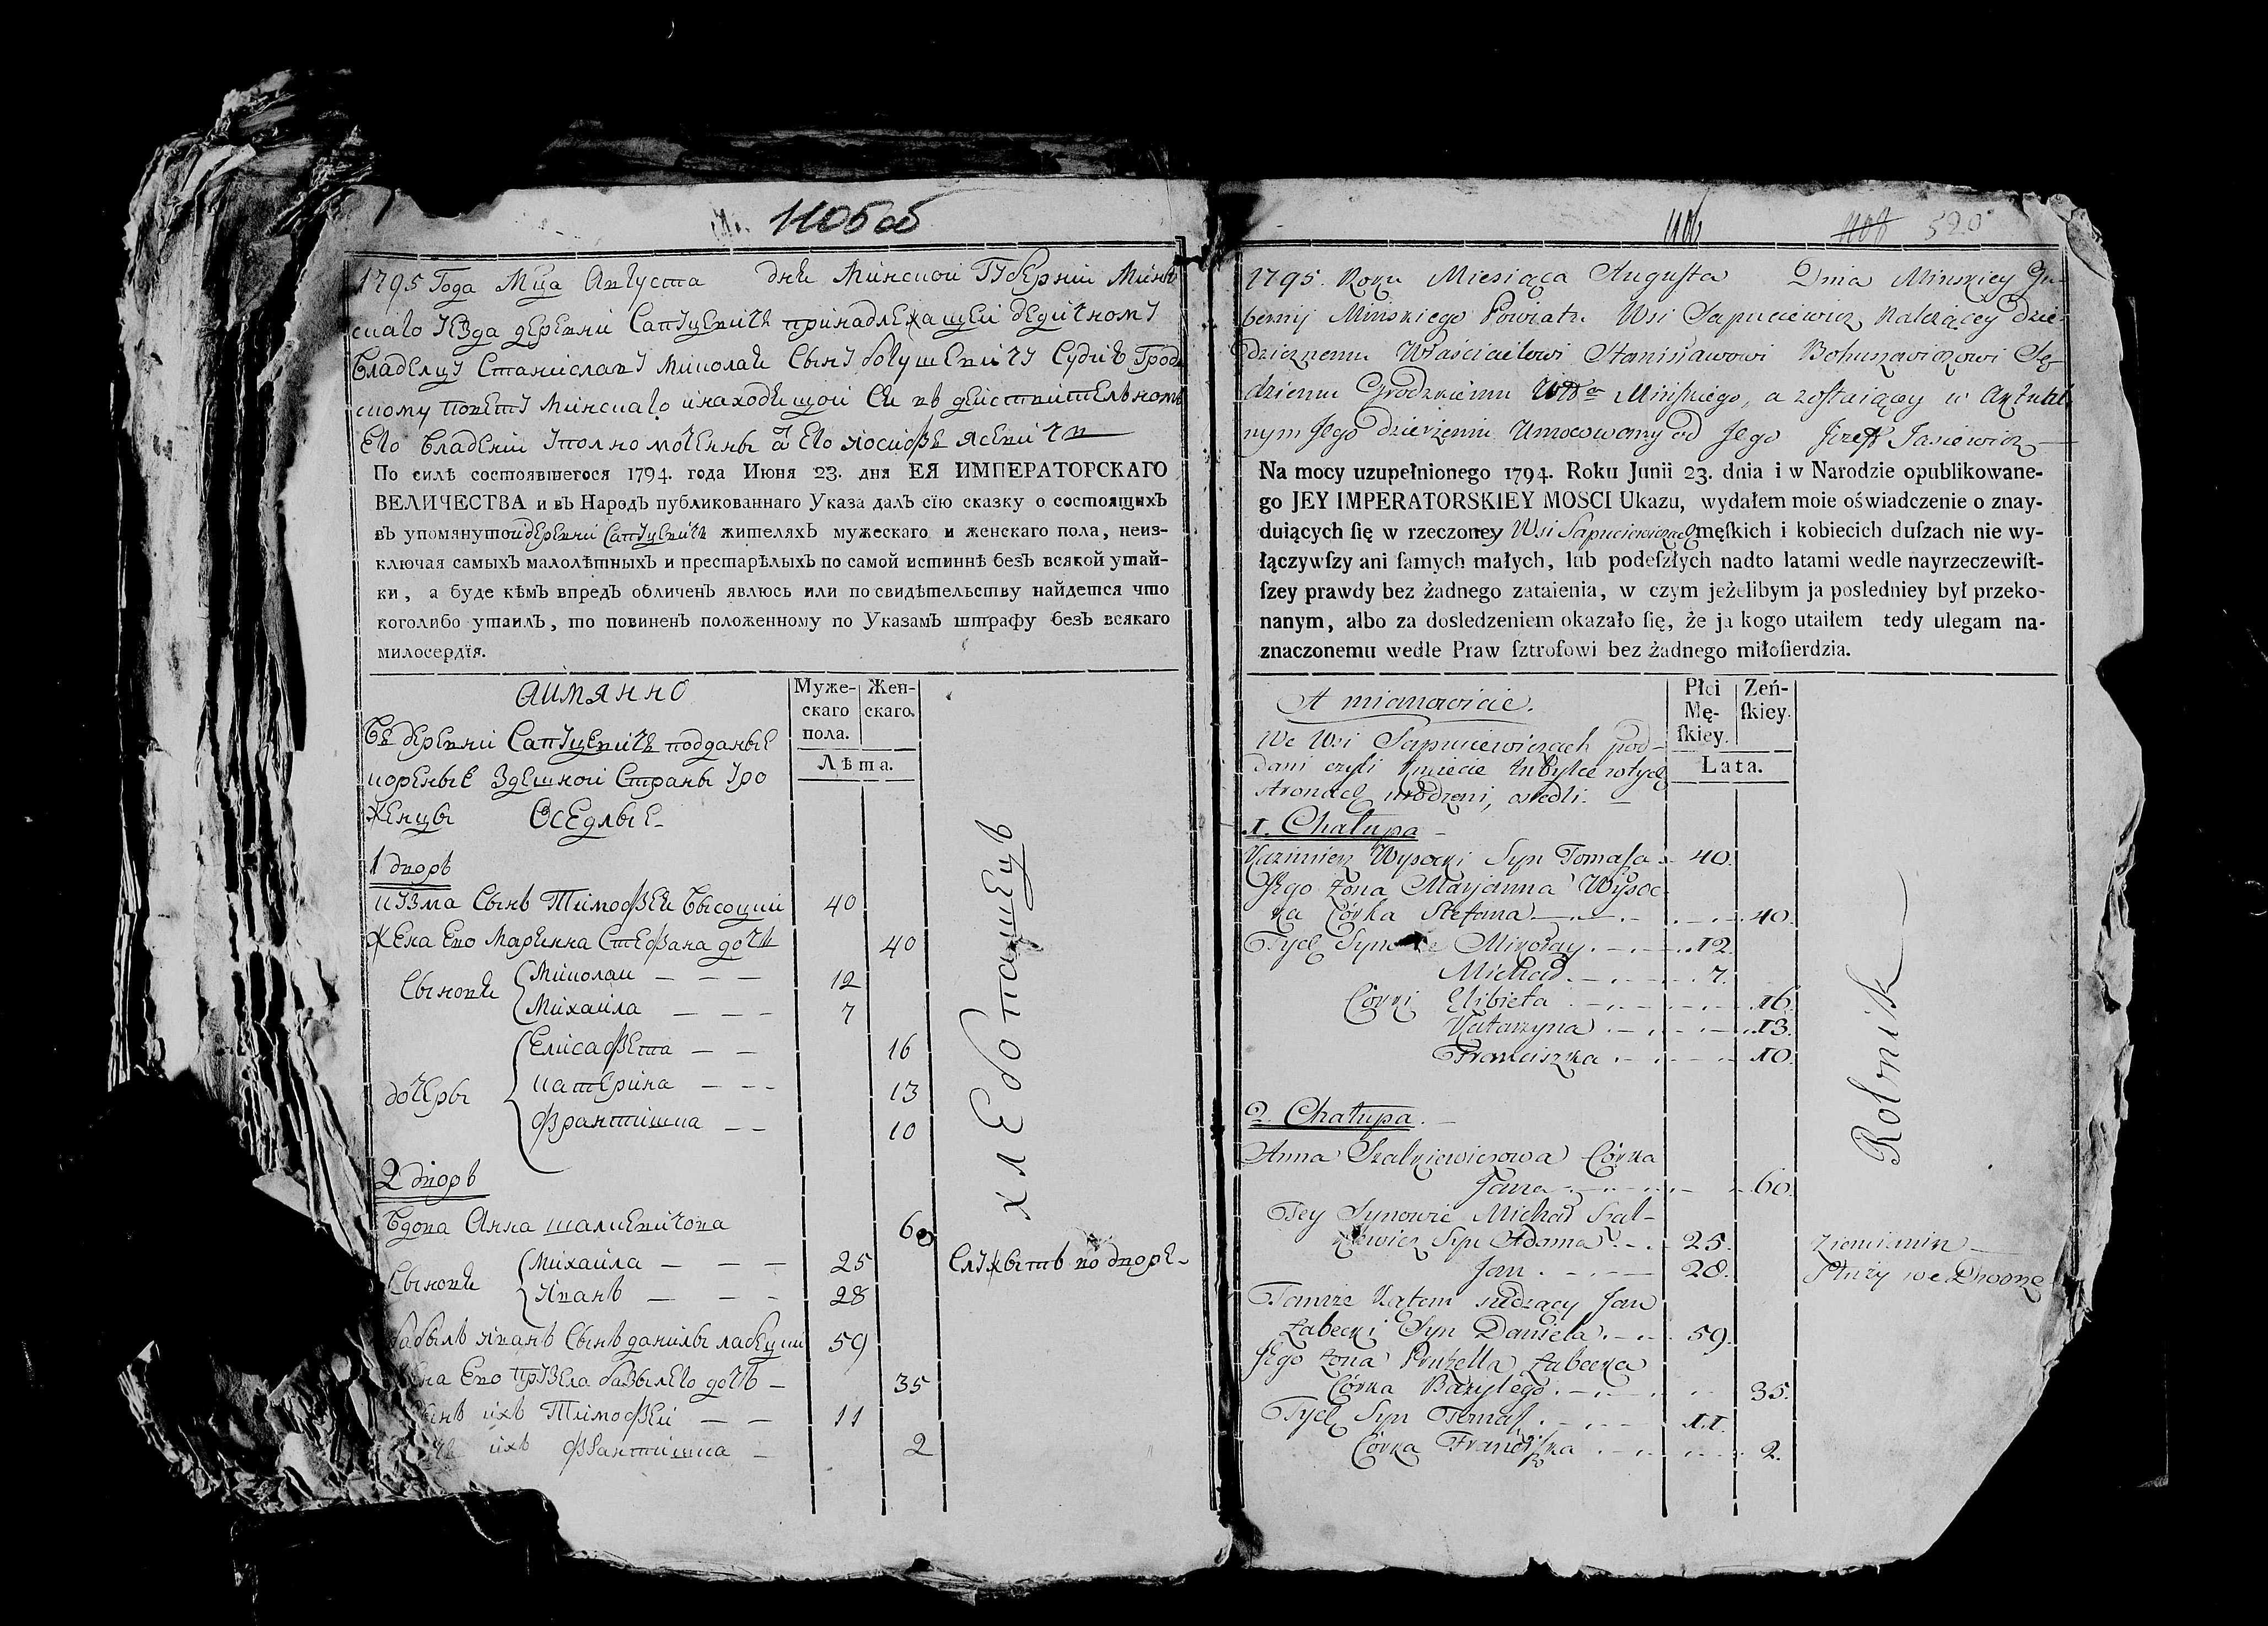 1105 об
1795 Года Мца Августа дня Минской Губернии Минъ
скаго уезда деревни Сапуцевичь принадлежащей дедичному
владелцу Станиславу Миколаи Сыну богушевичу Судие Грод
скому повету Минскаго инаходящой ся въ действителъномъ
Его владении уполномоченны от Его иосифъ ясевичъ
По силѣ состоявшегося 1794. года Июня 23. дня ЕЯ ИМПЕРАТОРСКАГО
ВЕЛИЧЕСТВА и въ Народъ публикованнаго Указа далъ сїю сказку о состоящихъ
въ упомянутой деревни Сапуцевичь жителяхъ мужескаго и женскаго пола, неиз-
ключая самыхъ малолѣтныхъ и престарѣлыхъ по самой истиннѣ безъ всякой утай-
ки, а буде кѣмъ впредь обличенъ явлюсь или по свидѣтельству найдется что
коголибо утаилъ, то повиненъ положенному по Указамъ штрафу безъ всякаго
милосердїя.
аимянно
Муже-
скаго
пола.
Жен-
скаго.
Лѣта.
Въ деревни Сапуцевичь подданые
кореные здешной Страны уро
женцы Оседлые
1 дворъ
кузма Сынъ Тимофея Высоцки 40
жена Ево Марянна Стефана дочь 40
Сыновя Миколаи 12
Михаила 7
дочеры Елисафета 16
катерина 13
франтишка 10
2 дворъ
Вдова Анна шалкевичова 60
Сыновя Михаила 25
Иванъ 28
бабылъ иванъ Сынъ данилы лабецки 59
жена Ево прузела базылего дочь 35
сынъ ихъ Тимофеи 11
ихъ франтишка 2
хлебопашецъ
Служытъ во дворе
1106 1108 520
1795. Roku Miesiąca Augusta Dnia Minskiey Gu-
bernij Minskiego Powiatu Wsi Sapuciewicz Należącey Dzie-
dzicznemu Właścicielowi Stanisławowi Bohuszewiczowi Sę-
dziemu Grodzkiemu Minskiego, a zostaiącey w Aktual
nym Jego dzierżeniu Umocowany od Jego Jozeff Jasiewicz
Na mocy uzupełnionego 1794. Roku Junii 23. dnia i w Narodzie opublikowane-
go JEY IMPERATORSKIEY MOSCI Ukazu, wydałem moie oświadczenie o znay-
duiących ſię w rzeczoney Wsi Sapuciewiczach męſkich i kobiecich duſzach nie wy-
łączywſzy ani ſamych małych, lub podeſzłych nadto latami wedle nayrzeczewiſt-
ſzey prawdy bez żadnego zataienia, w czym jeżelibym ja posledniey był przeko-
nanym, albo za dosledzeniem okazało ſię, że ja kogo utaiłem tedy ulegam na-
znaczonemu wedle Praw ſztrofowi bez żadnego miłoſierdzia.
A mianowicie.
Płci
Mę-
ſkiey.
Zeń-
ſkiey.
Lata.
We Wsi Sapuciewiczach pod-
dani czyli Kmiecie tubylce w tych
stronach urodzeni, osiedli.
1. Chałupa
Kazimierz Wysocki Syn Tomasa 40.
Jego Żona Maryanna Wysoc-
ka Córka Stefana 40.
Tych Synowie Mikołay 12.
Michał 7.
Córki Elżbieta 16.
Katarzyna 13.
Franciszka 10.
2. Chałupa.
Anna Szalkiewiczowa Córka
Jana 60.
Tey Synowie Michał Szal-
kiewicz Syn Adama 25.
Jan 28.
Tamże Kątem siedzący Jan
Łabecki Syn Daniela 59.
Jego Żona Pruzella Łabecka
Córka Bazylego 35.
Tych Syn Tomasz 11.
Córka Franciszka 2.
Robnik
Ziemianin
Służy we Dworze